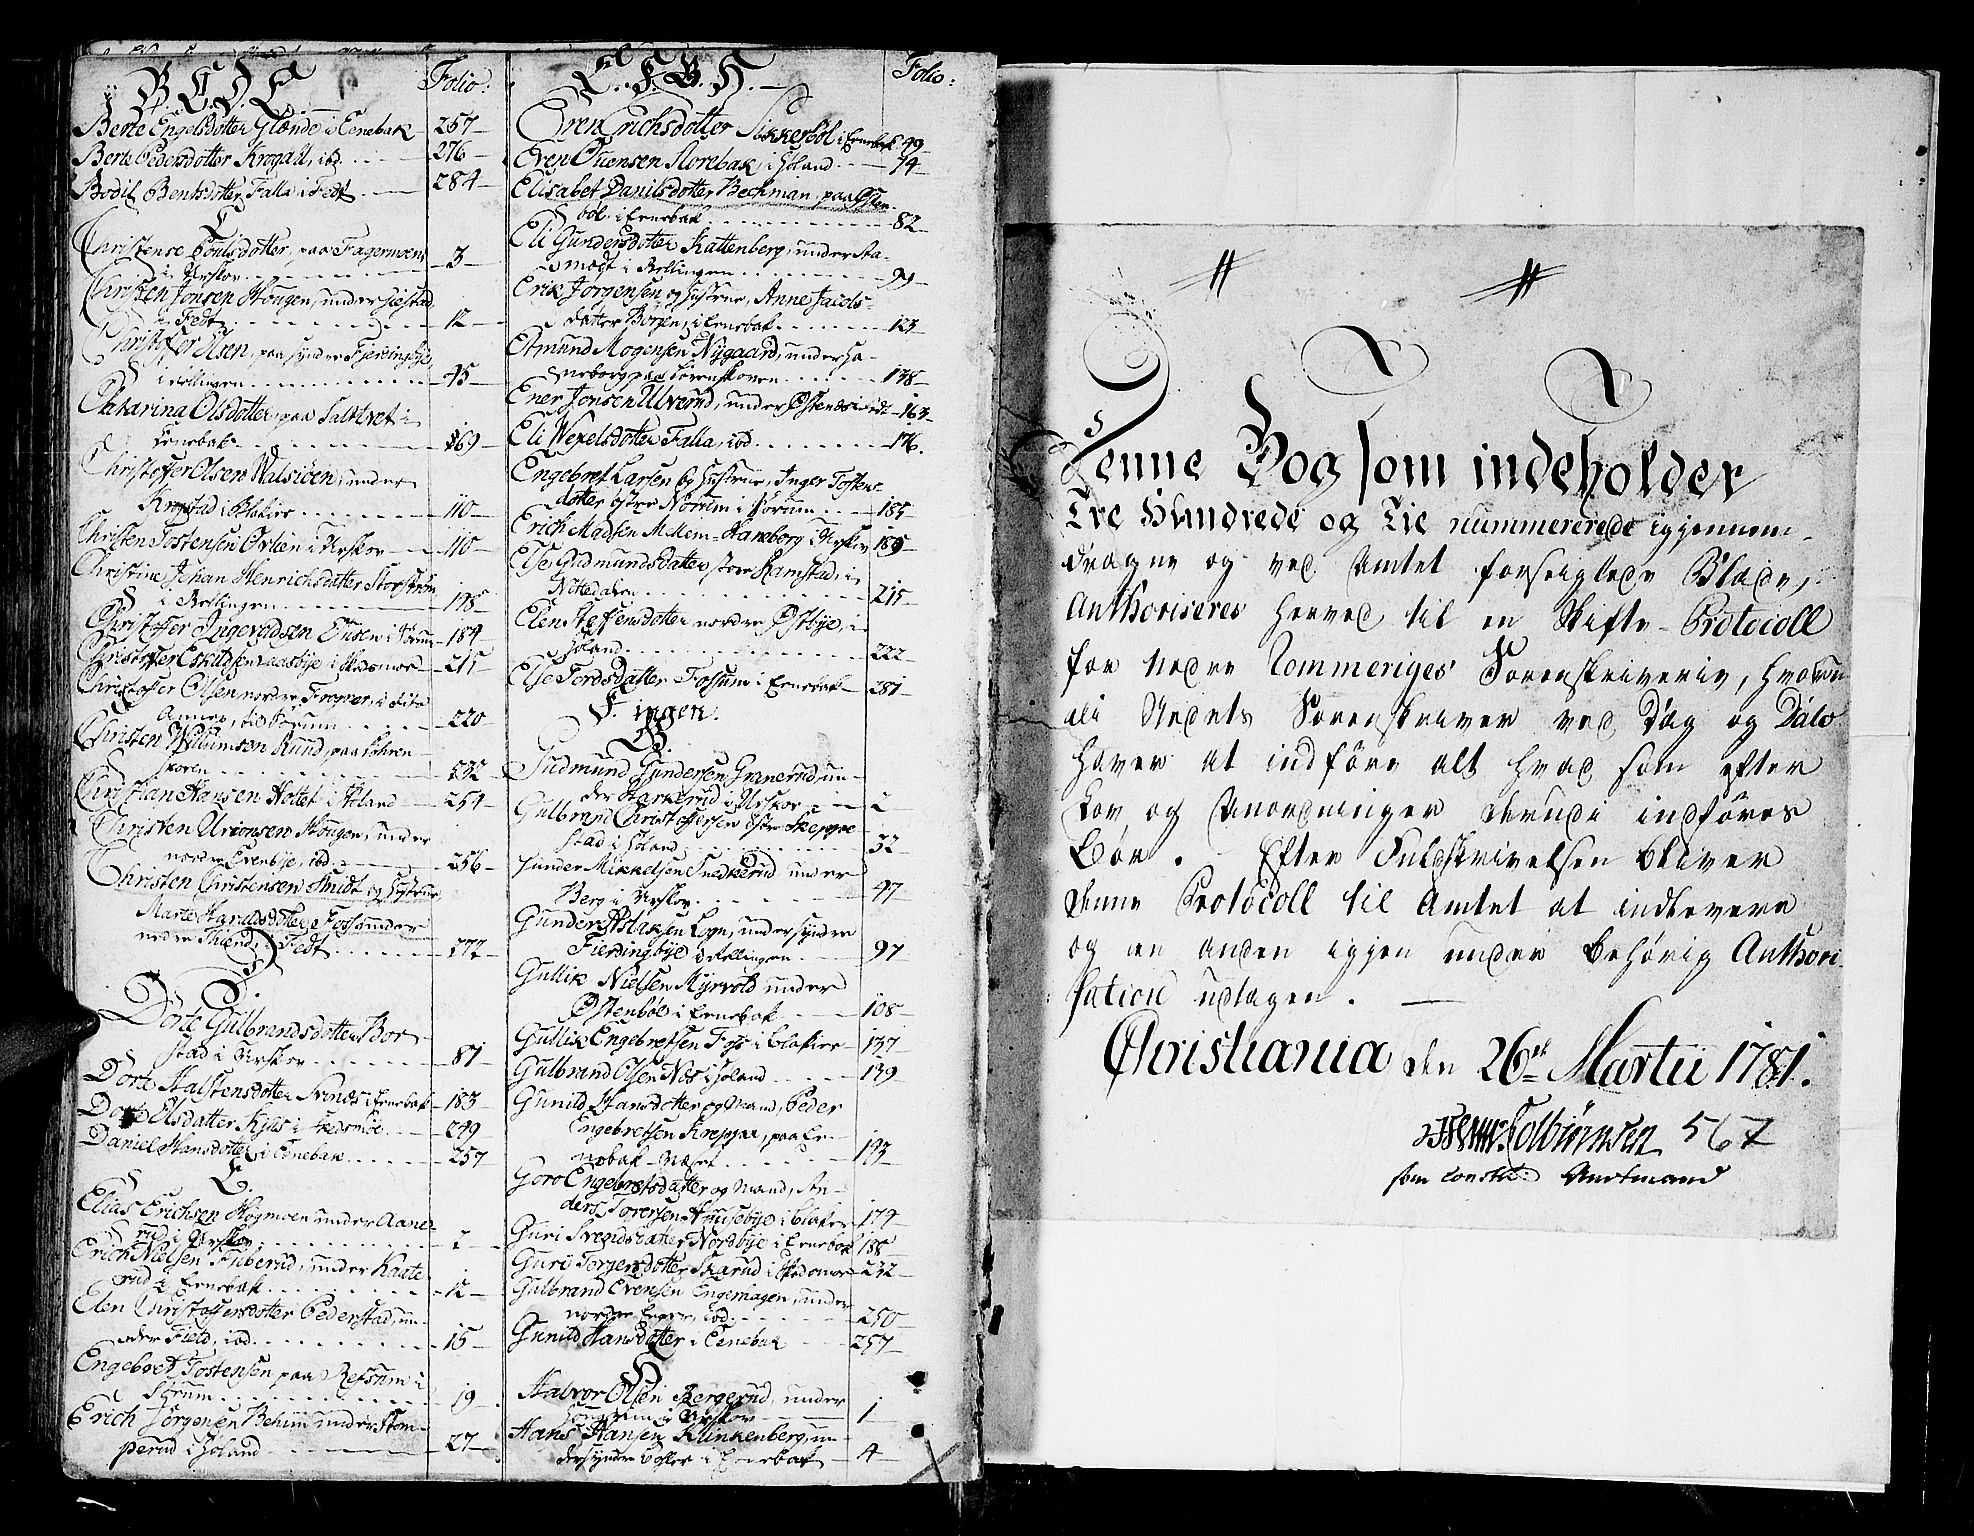 B. C. D. E.
Folio:
Berte Engelsdotter Glænde i Eenebak 257
Berte Pedersdotter Krogall, ibd. 276
Bodil Bentsdotter Falla i Fedt 284
C
Christense Poulsdotter, paa Fagermoen
i Urskov 3
Christen Jonsen Hougen, under
i Fedt 12
Christoffer Olsen, paa syndre Fjerdingbye,
i Rellingen 45
Catarina Olsdotter, paa
Eenebak 69
Christoffer Olsen Walsiøen, under
Krogstad i Blakier 110
Christen Tostensen Ørlien i Urskov 110
Christine Johan Henrichsdatter Storstrøm
i Rellingen 178
Christoffer Ingevaldsen i Sørum 184
Christoffer Eskildsen Aasbye i Skedsmoe 215
Christoffer Olsen nordre Frogner, i
Annex, til Sørum 220
Christen Willumsen Rund, paa
skoven 232
Christian Hansen Hottet i Høland 254
Christen Urionsen Hougen, under
nordre Evenbye, ibd. 256
Christen Christensen Smidt og Hustrue,
Marte Haraldsdotter, under
nedre i Fedt 272
D.
Dorte Gulbrandsdotter Bor-
stad i Urskov 81
Dorte Halstensdotter i Eenebak 183
Dorte Olsdatter Kjus i Skedsmoe 249
Daniel Hansdotter, i Eenebak 257
E.
Elias Erichsen Høgmoen under Aane-
rud i Urskov 2
Erich Nielsen Tuberud, under Kaate-
rud i Eenebak 12
Elen Christoffersdotter Pederstad, un-
der Field, ibd. 15
Engebret Tostensen paa Refsum i
Sørum 19
Erich Jørgensen Behim under Kom-
perud i Høland 27
E. F. G. H.
Folio:
Even Erichsdotter Sikkerbøl i Eenebak 49
Even Ouensen Storebak, i Høland 74
Elisabet Danilsdotter Bechman, paa Østen-
bøl i Eenebak 82
Eli Gundersdotter Kattenberg, under Sta-
i Rellingen 99
Erik Jørgensen og Hustrue, Anne Jacobs-
datter Børsen, i Eenebak 123
Etmund Mogensen Nygaard, under Ha-
neborg paa Sørenskoven 138
Ener Jonsen Ulverud, under Østends i Fedt 163
Eli Wexelsdotter Falla, ibd. 176
Engebret Larsen og Hustrue, Inger Tostens-
dotter østre Norum i Sørum 185
Erich Madsen Mellem-Haneborg i Urskov 185
Else Gudmundsdatter store Ramstad, i
Nittedalen 215
Elen Steffensdotter nordre Østbye, i
Høland 222
Else Tordsdatter Fossum i Eenebak 281
F. ingen.
G.
Gudmund Gundersen Granerud, un-
der Harkerud i Urskov 2
Gulbrand Christoffersen østre Skeppe-
stad i Høland 32
Gunder Mikkelsen Snedkerud under
Berg i Urskov 47
Gunder Aslaksen Logn, under syndre
Fierdingbye i Rellingen 97
Gullik Nielsen Myrvold under
Østenbøl i Eenebak 108
Gullik Engebretsen Foss i Blakier 137
Gulbrand Olsen Nos i Høland 139
Gunild Hansdotter og Mand, Peder
Engebretsen Kreppa, paa Ee-
nebak-Næset 193
Goro Engebretsdatter og Mand, An-
ders Torersen Huusebye i Blakier 174
Guri Svendsdatter Nordbye i Eenebak 188
Guri Torgersdotter Skarud i Skedsmoe 232
Gulbrand Evensen Engermagen, under
nordre Enger, ibd. 250
Gunild Hansdotter i Eenebak 257
H
Halvor Olsen Bergerud, under
i Urskov 1
Hans Hansen Klinkenberg, un-
der syndre i Eenebak 4
Denne Bog som indeholder
Tre Hundrede og Tie nummererede igjennem-
dragne og ved Amtet forseiglede Blade,
Authoriseres herved til en Skifte-Protocoll
for Nedre Rommeriges Sorenskriverie, hvorudi
Stedets Sorenskriver ved Dag og Dato
haver at indføre alt hvad som efter
Lov og Anordninger derudi indføres
bør. Efter Fuldskrivelsen bliver
denne Protocoll til Amtet at indlevere
og en anden igjen under behørig Authori-
sation udtagen. —
Christiania den 26de Martii 1781.
Colbiørnsen 567
som const: Amtmand